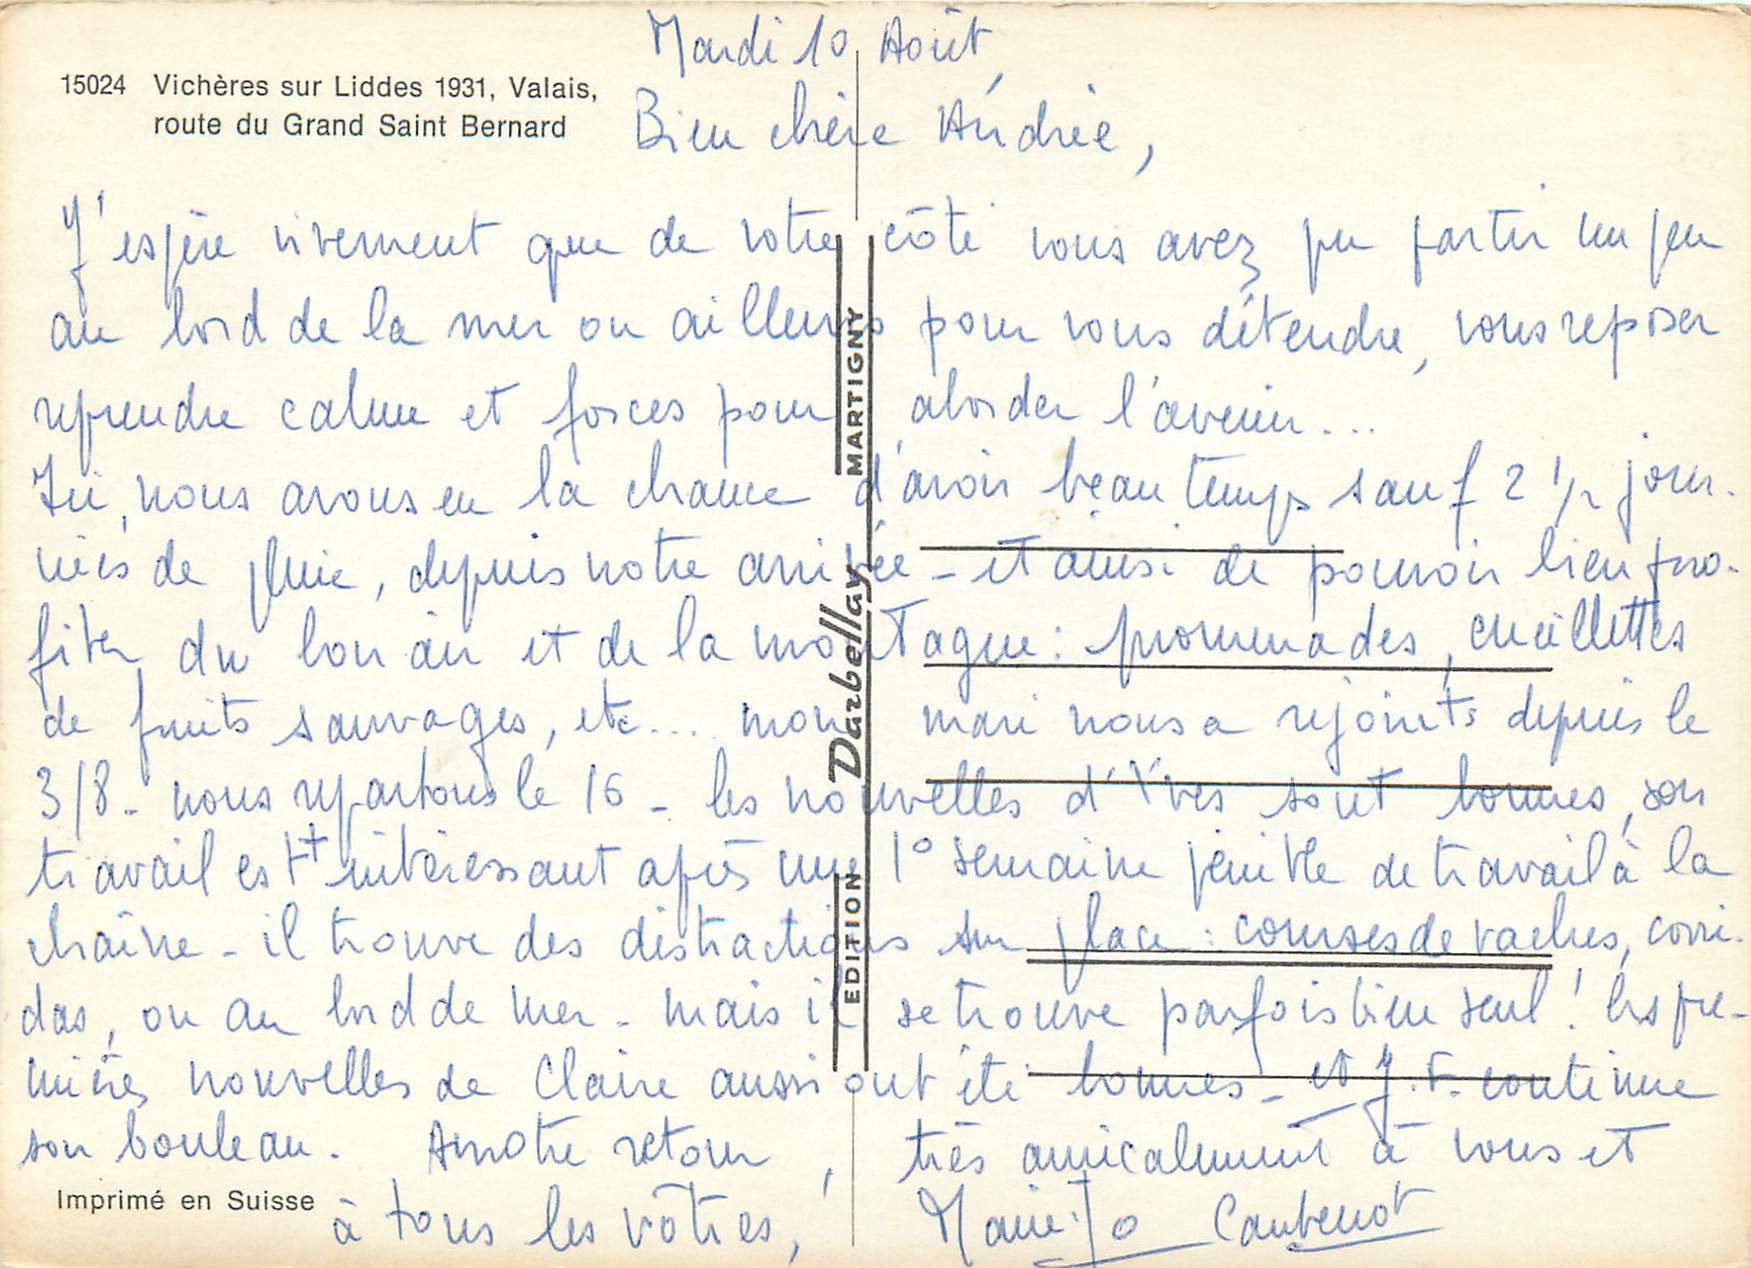 Mardi 10 Août
15024 Vichères sur Liddes 1931, Valais,
route du Grand Saint Bernard
Bien chère Andrée,
J'espère vivement que de votre côté vous avez pu partir un peu
au bord de la mer ou ailleurs pour vous détendre, vous reposer
reprendre calme et forces pour aborder l'avenir...
Ici, nous avons eu la chance d'avoir beau temps sauf 2 1/2 jour-
nées de pluie, depuis notre arrivée - et ainsi de pouvoir bien pro-
fiter du bon air et de la montagne : promenades, cueillettes
de fruits sauvages, etc.... mon mari nous a rejoints depuis le
3/8 - nous repartons le 16 - les nouvelles d'Yves sont bonnes, son
travail est intéressant après une 1° semaine pénible de travail à la
chaîne - il trouve des distractions sur place : courses de vaches, corri-
das, ou au bord de mer - mais il se trouve parfois bien seul ! les pre-
mières nouvelles de Claire aussi ont été bonnes - et J.F. continue
son bouleau. A notre retour, très amicalement à vous et
à tous les vôtres, Marie-Jo
Imprimé en Suisse
EDITION Darbellay MARTIGNY